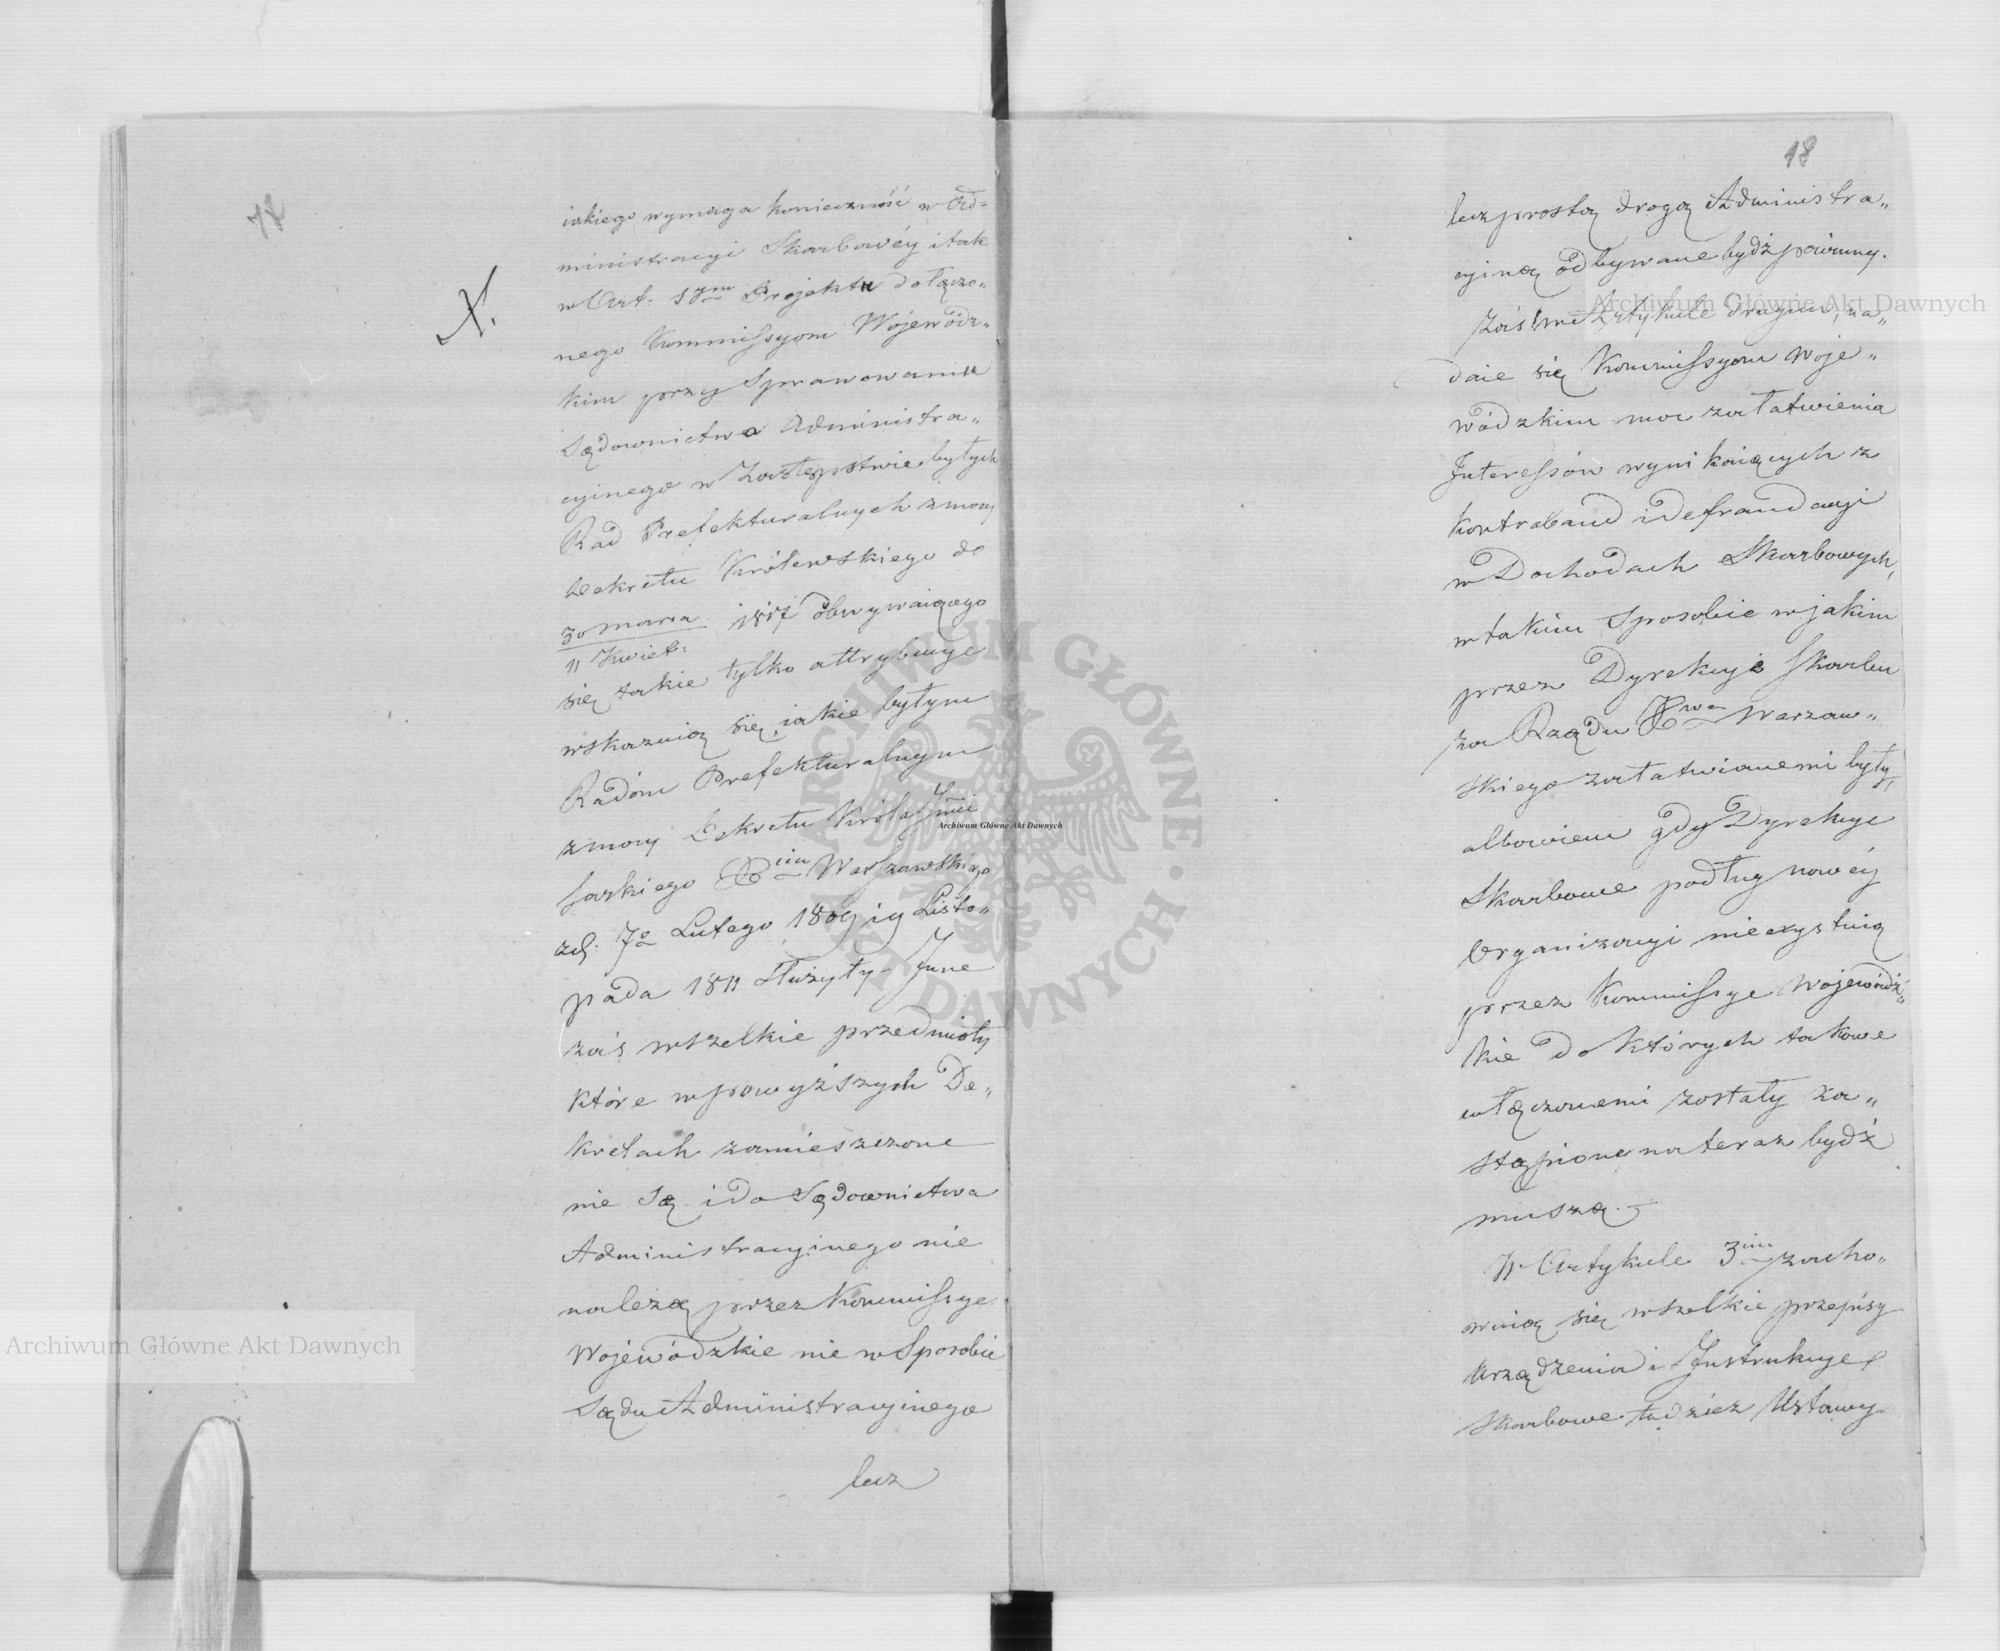 iakiego wymaga konieczność w Ad=
ministracyi Skarbowéy i tak
w Art: 1ym Projektu dołączo„
nego Kommissyom Wojewódz„
kim przy Sprawowaniu
Sądownictwa Administra„
cyinego w Zastępstwie byłych
Rad Prefekturalnych z mocy
Dekretu Królewskiego de
30 marca / 11 Kwiet: 1817 obwywaiącego
się takie tylko attrybucye
wskazuią się, iakie byłym
Radóm Prefekturalnym
z mocy Dekretu Króla Jmci
Saskiego Xcia Warszawskiego
zd. 7o Lutego 1809 i 9 Listo„
pada 1811 służyły – Inne
zaś wszelkie przedmioty
które w powyższych De„
kretach zamieszczone
nie są i do Sądownictwa
Administracyinego nie
należą przez Kommissye
Wojewódzkie nie w Sposobie
Sądu Administracyinego
lecz
18
lecz prostą drogą Administra„
cyiną odbywane bydź powinny.
Zaś w Artykule drugim, na„
daie się Kommissyom Woje„
wódzkim moc załatwienia
Interessów wynikaiących z
kontraband i defraudacyi
w Dochodach Skarbowych,
w takim Sposobie w jakim
przez Dyrekcye Skarbu
za Rządu Xwa Warszaw„
skiego załatwianemi były,
albowiem gdy Dyrekcye
Skarbowe podług nowéy
Organizacyi nieexystuią
przez Kommissye Wojewódz„
kie do których takowe
włączonemi zostały za„
stąpione na teraz bydź
muszą.–
W Artykule 3im zacho„
wuią się wszelkie przepisy
Urządzenia i Instrukcye
Skarbowe tudzież Ustawy
Archiwum Główne Akt Dawnych
Archiwum Główne Akt Dawnych
Archiwum Główne Akt Dawnych
ARCHIWUM GŁÓWNE AKT DAWNYCH